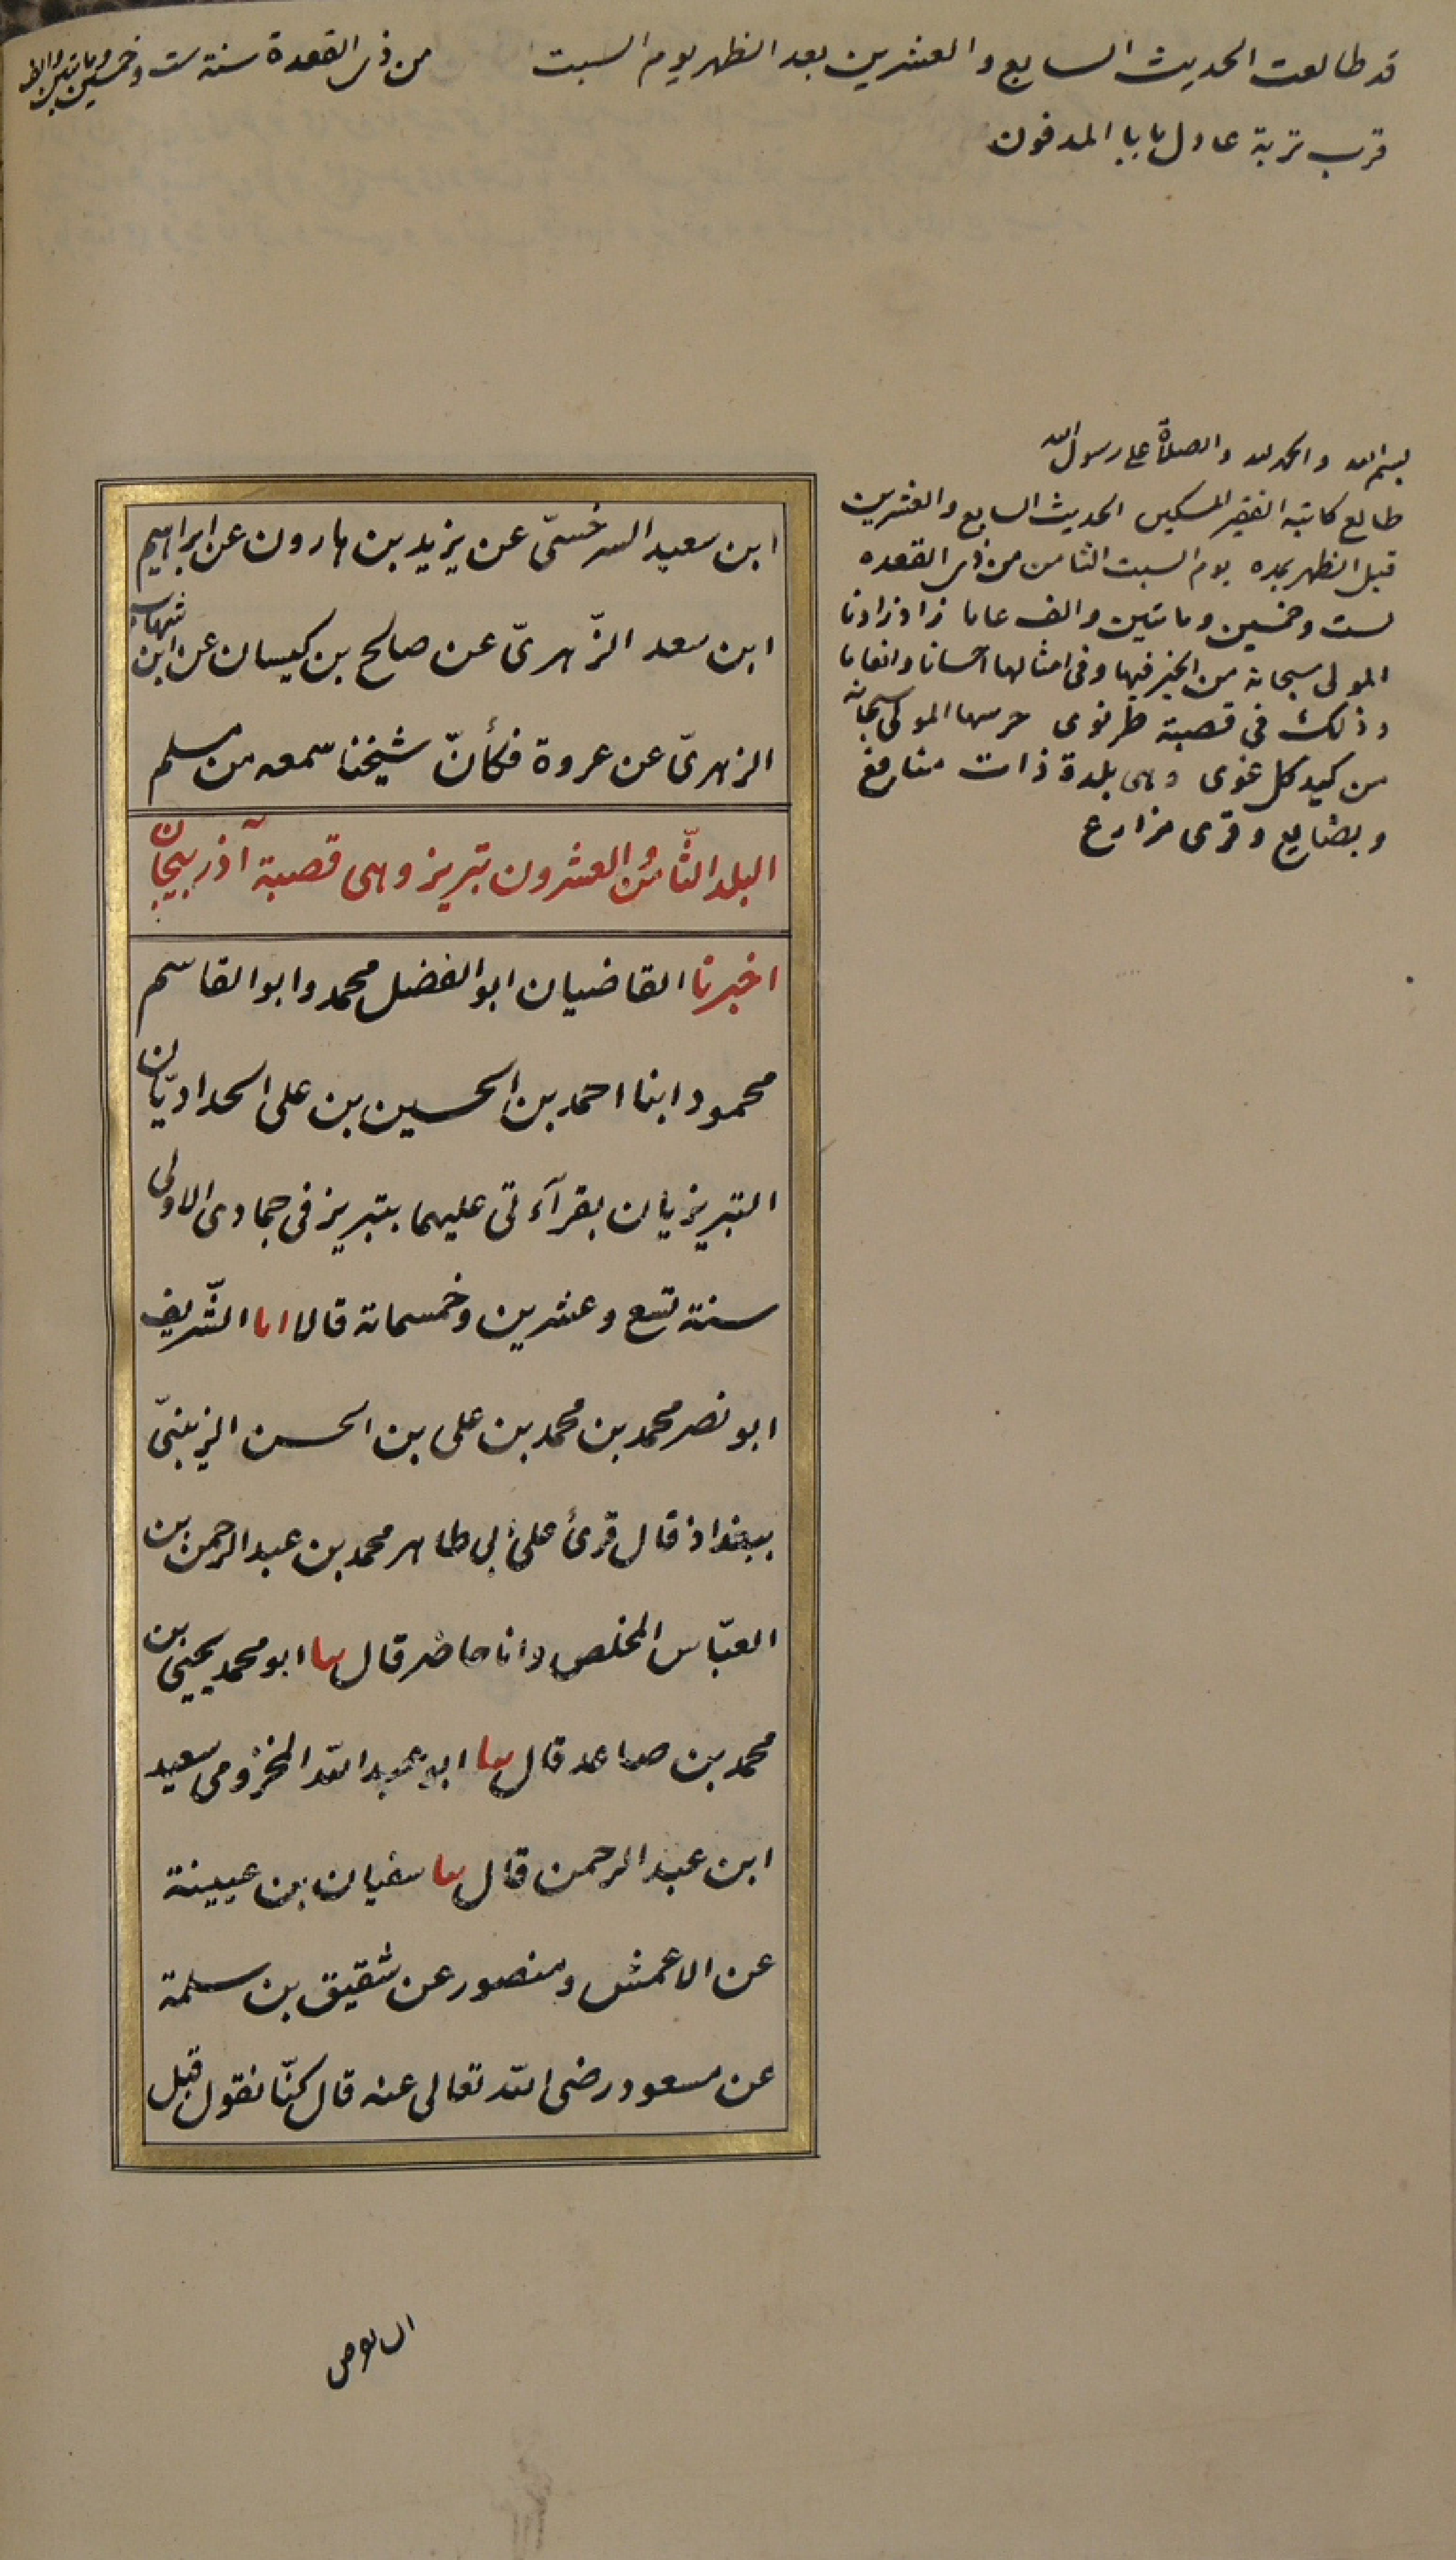 قد طالعت الحديث السابع والعشرين بعد الظهر يوم السبت من ذى القعدة سنة ست وخمسين وماتين والف
قرب تربة عادل بابا المدفون
بسم الله والحمد لله والصلاة على رسول الله
طالع كاتبه الفقير المسكين الحديث السابع والعشرين
قبل الظهر بمده يوم السبت الثامن من ذى القعده
لست وخمسين وماتين والف عاما زاد زادنا
المولى سبحانه من الخير فيها وفى امثالها احسانا وانعاما
وذلك فى قصبة طرنوى حرسها المولى سبحانه
من كيد كل غوى وهى بلدة ذات منارفع
وبضايع وقرى مزارع
ابن سعيد السرخسىّ عن يزيد بن هارون عن ابراهيم
ابن سعد الزّهرىّ عن صالح بن كيسان عن ابن شهاب
الزهرىّ عن عروة فكأنّ شيخنا سمعه من مسلم
البلد الثّامن والعشرون تبريز وهى قصبة آذربيجان
اخبرنا القاضيان ابو الفضل محمد وابو القاسم
محمود ابنا احمد بن الحسين بن على الحداديّان
التبريزيان بقرآءتى عليهما بتبريز فى جمادى الاولى
سنة تسع وعشرين وخمسمائة قالا انا الشّريف
ابو نصر محمد بن محمد بن على بن الحسن الزينبىّ
ببغداذ قال قرئ على ابى طاهر محمد بن عبد الرحمن بن
العبّاس المخلص وانا حاضر قال ثنا ابو محمد يحيى بن
محمد بن صاعد قال ثنا ابو عبيد الله المخزومى سعيد
ابن عبد الرحمن قال ثنا سفيان بن عيينة
عن الاعمش ومنصور عن شقيق بن سلمة
عن مسعود رضى الله تعالى عنه قال كنّا نقول قبل